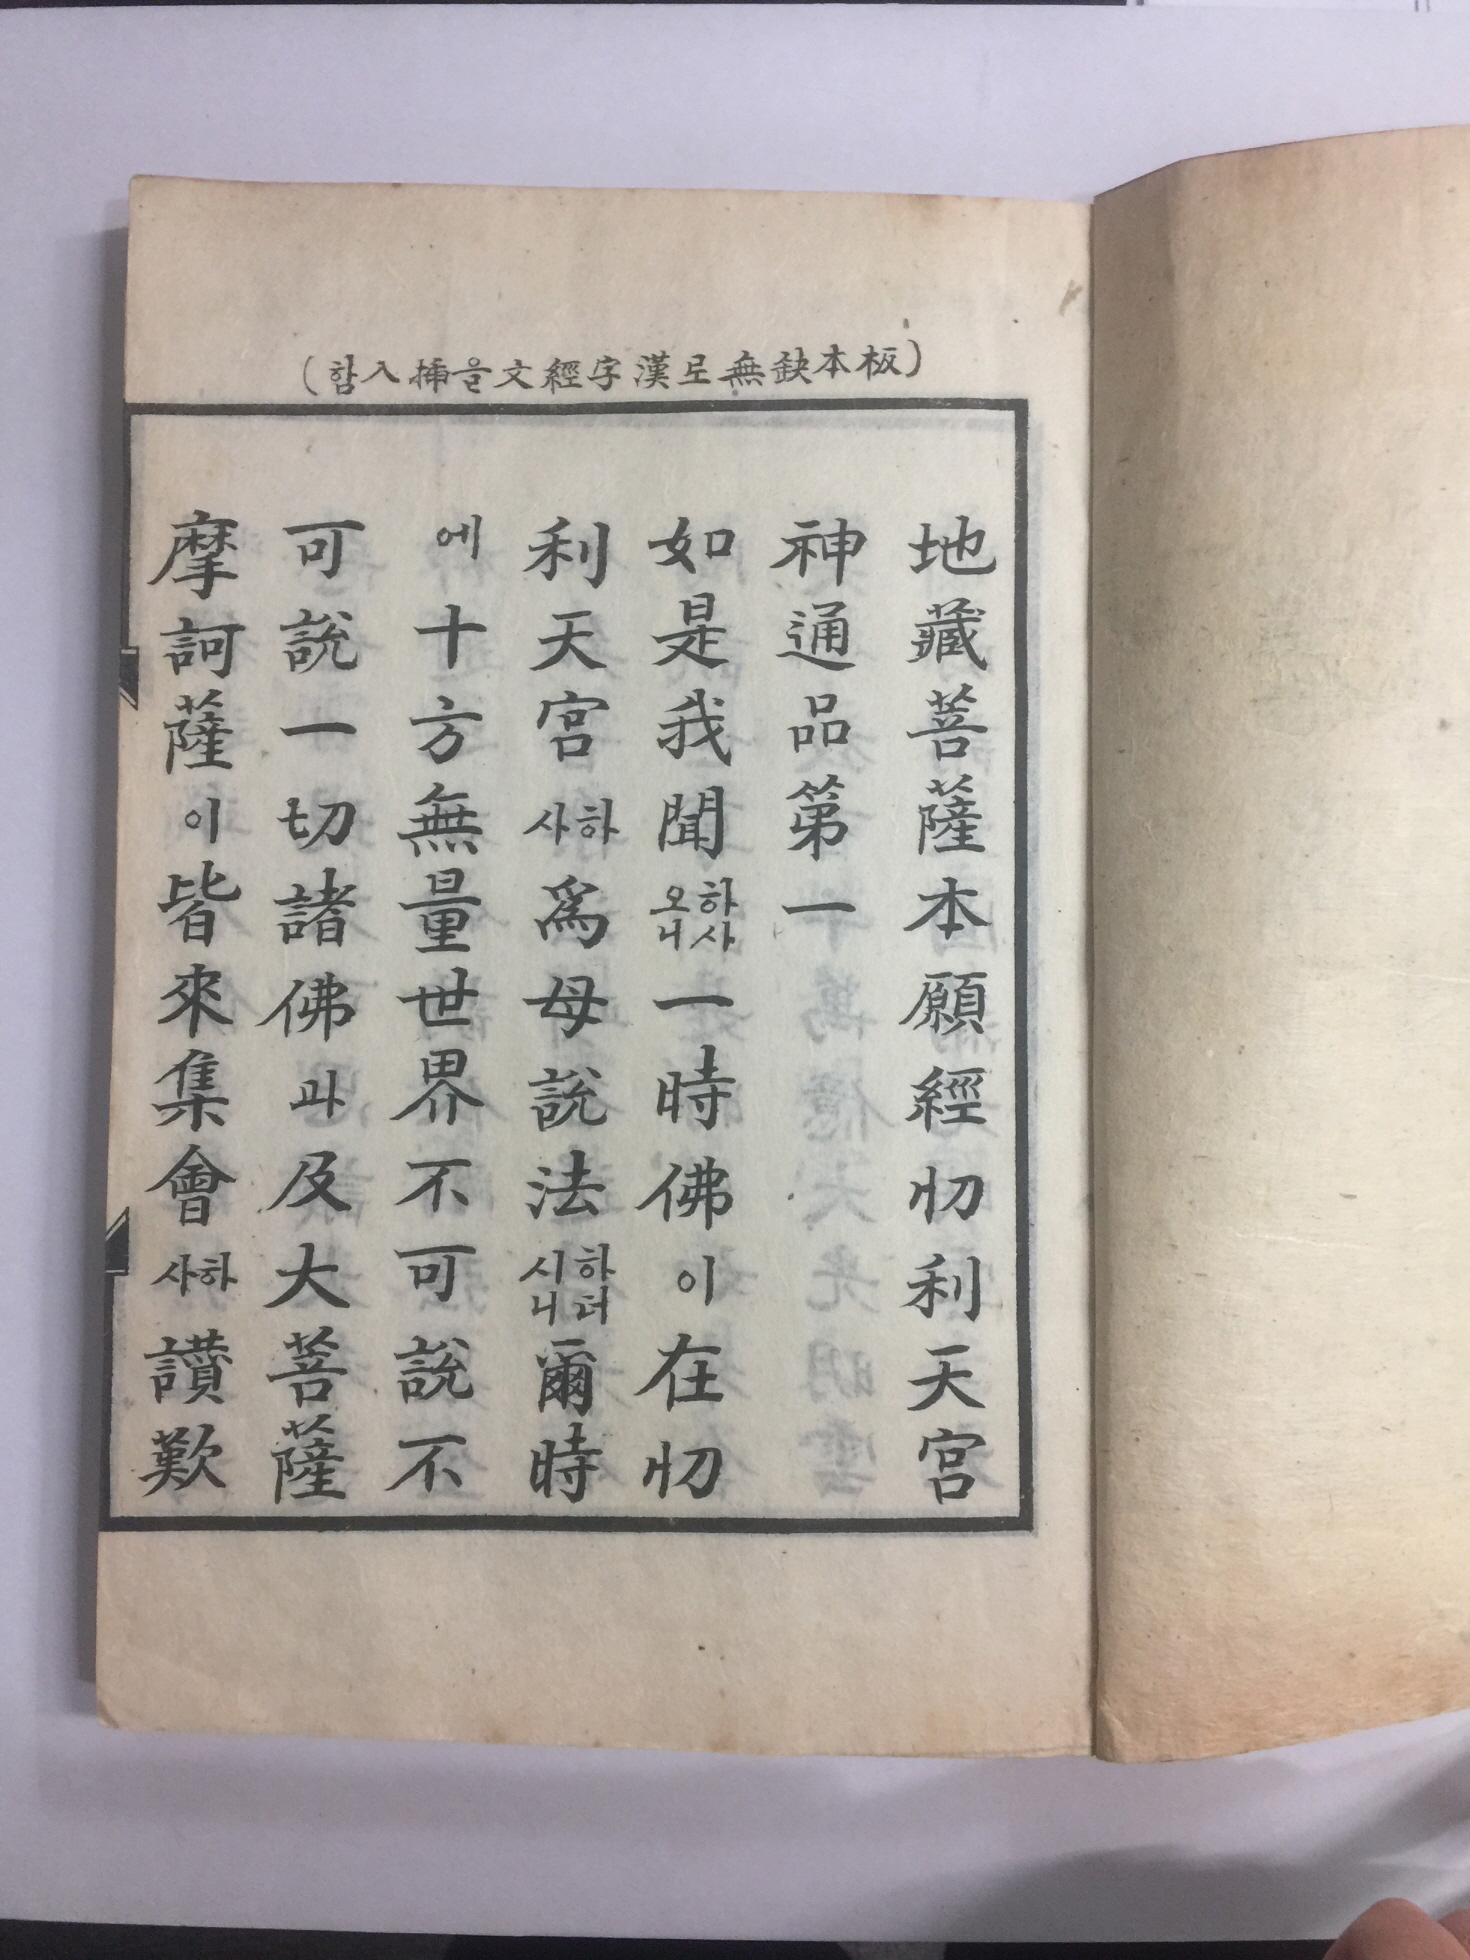 (板本缺無로漢字經文을揷入함)
地藏菩薩本願經忉利天宮
神通品第一
如是我聞하사오니一時佛이在忉
利天宮하사爲母說法하더시니爾時
에十方無量世界不可說不
可說一切諸佛과及大菩薩
摩訶薩이皆來集會하사讚歎